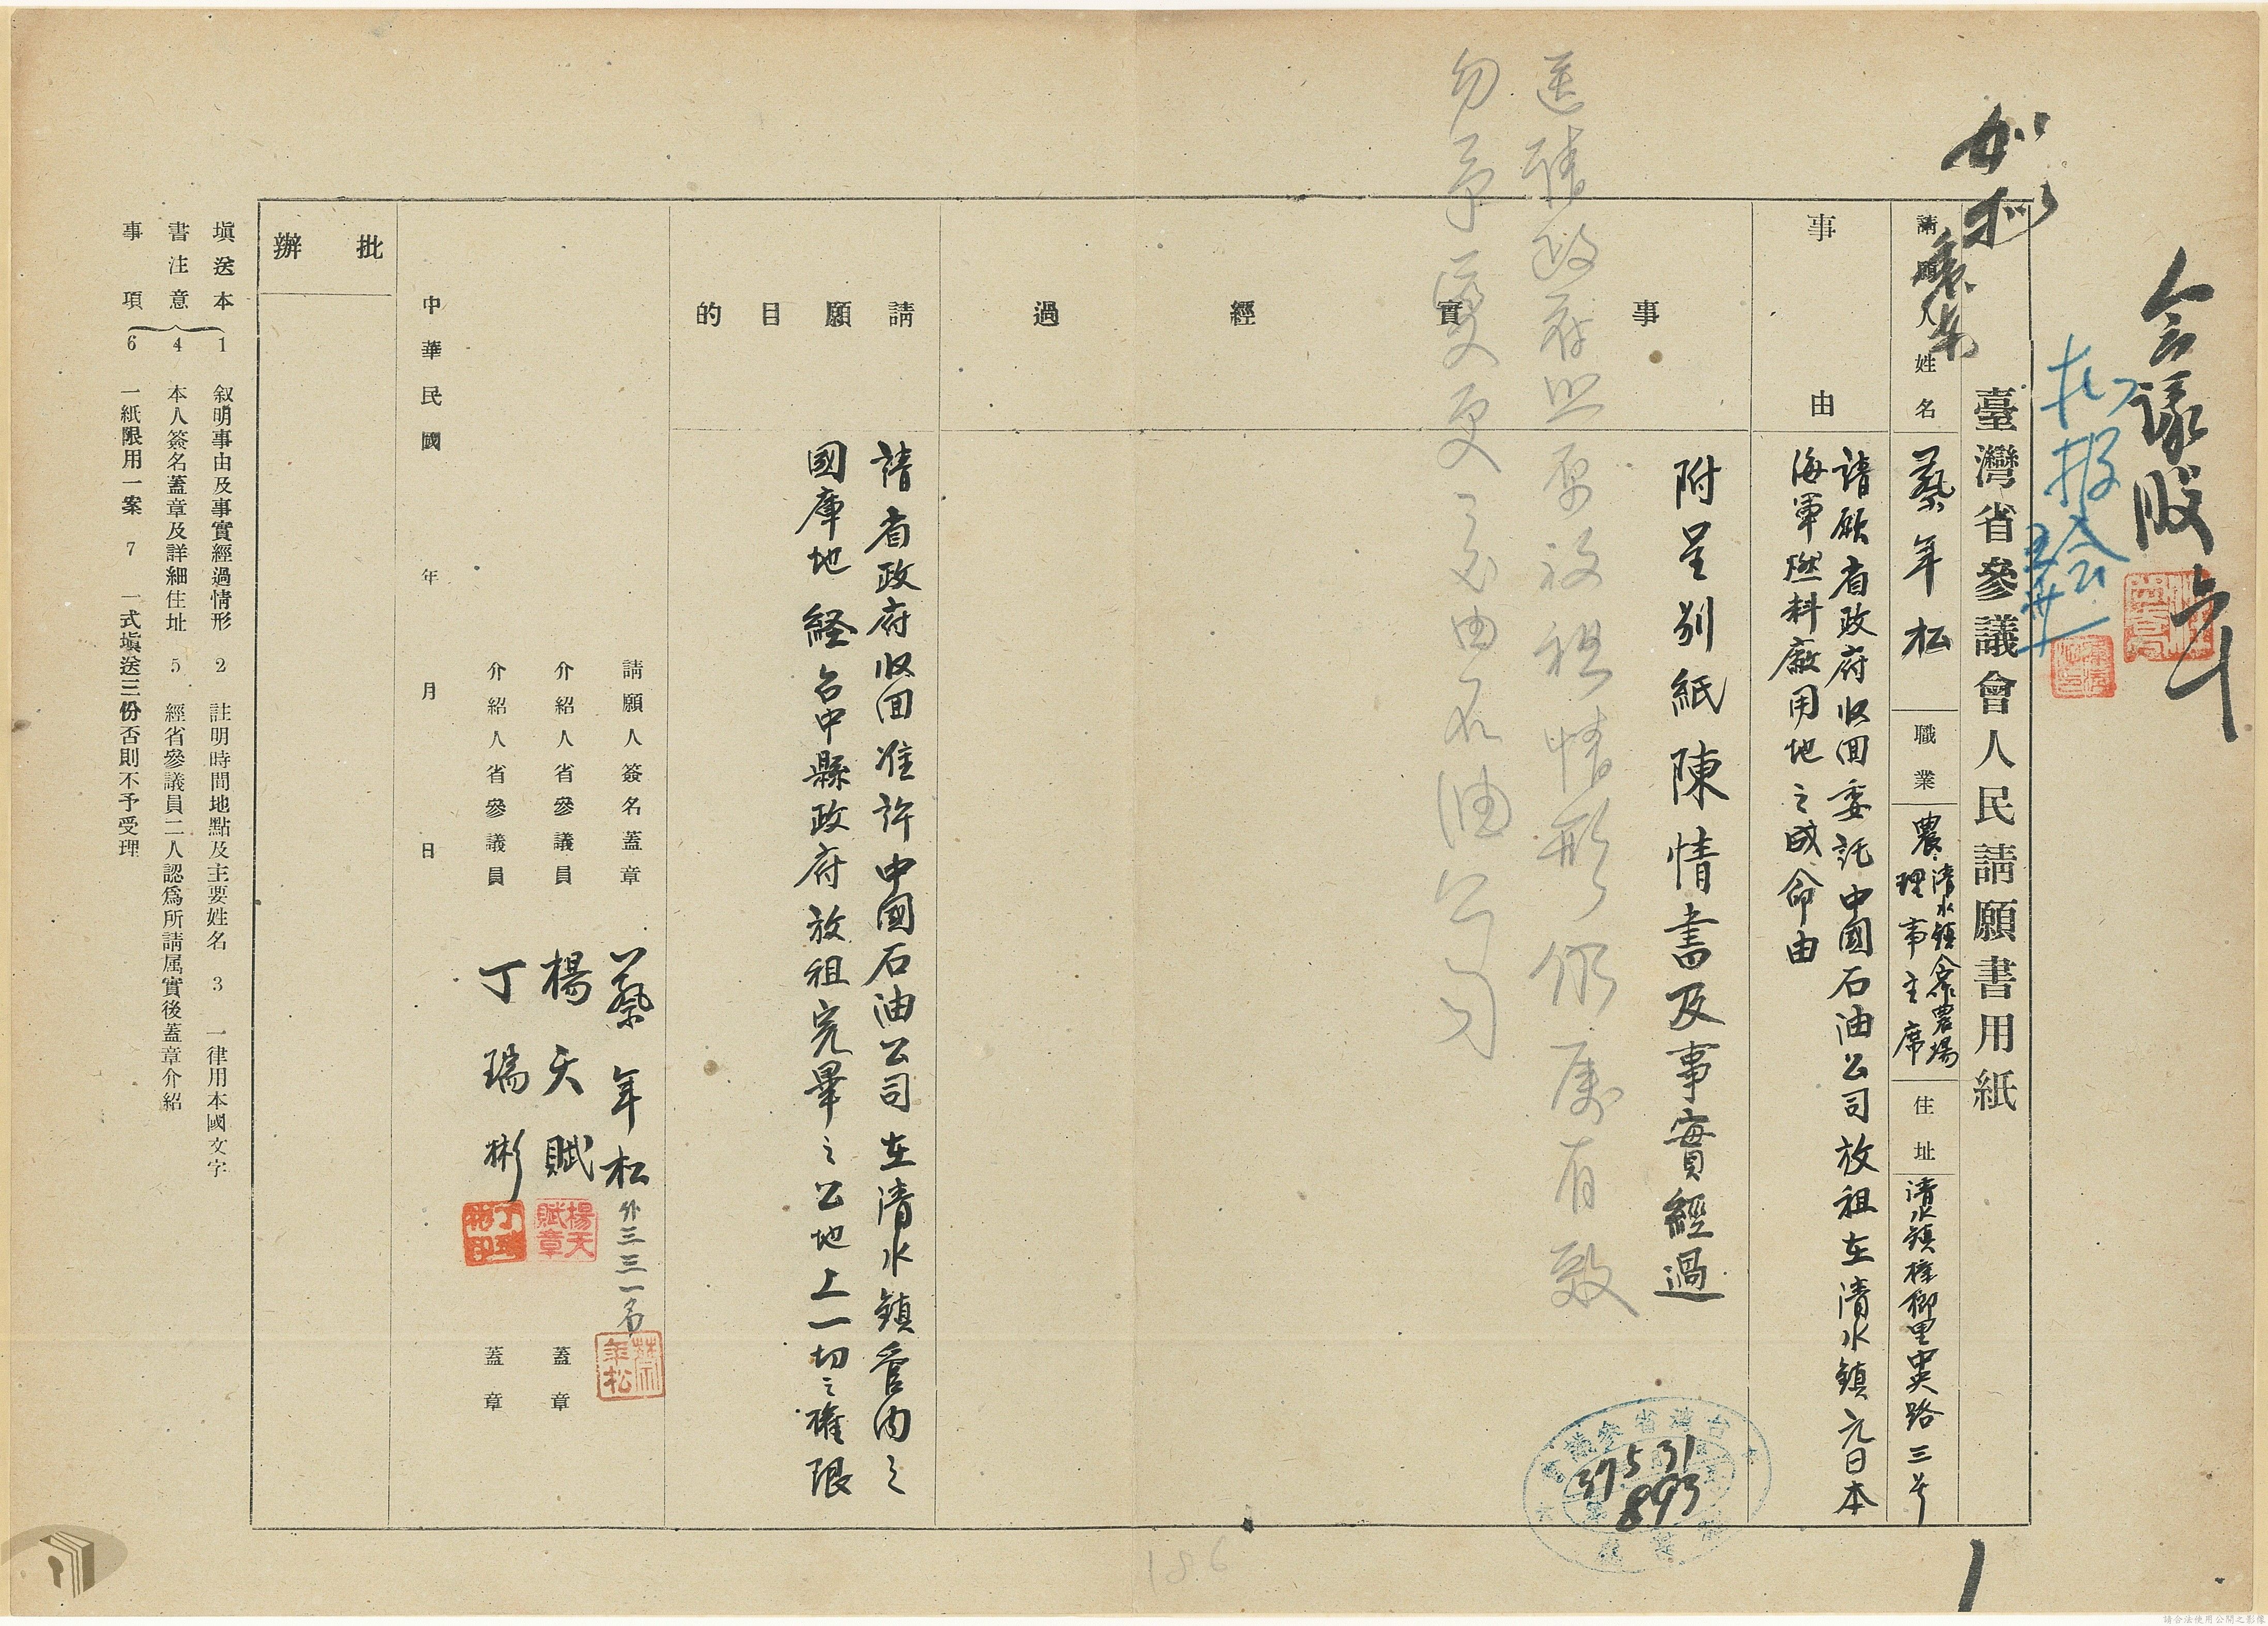 會議股
批報
如擬
臺灣省參議會人民請願書用紙
請願人姓名
蔡年松
職業
農、清水鎮合作農場
理事主席
住址
清水鎮橋頭里中央路三号
事由
請願省政府收回委託中國石油公司放租在清水鎮元日本
海軍燃料廠用地之成命由
事實經過
附呈別紙陳情書及事實經過
送請政府照原放租情形仍屬有效
勿予變更 由石油公司
台灣省參議
37 5 31
893
請願目的
請省政府收回准許中國石油公司在清水鎮管內之
國庫地経台中縣政府放租完畢之公地上一切之權限
請願人簽名蓋章
蔡年松外三三一名
蔡年松
介紹人省參議員
楊天賦
楊天賦章
蓋章
介紹人省參議員
丁瑞彬
丁瑞彬印
蓋章
中華民國 年 月 日
批辦
填送本書注意事項
1 叙明事由及事實經過情形 2 註明時間地點及主要姓名 3 一律用本國文字
4 本人簽名蓋章及詳細住址 5 經省參議員二人認爲所請属實後蓋章介紹
6 一紙限用一案 7 一式塡送三份否則不予受理
186
請合法使用公開之影像